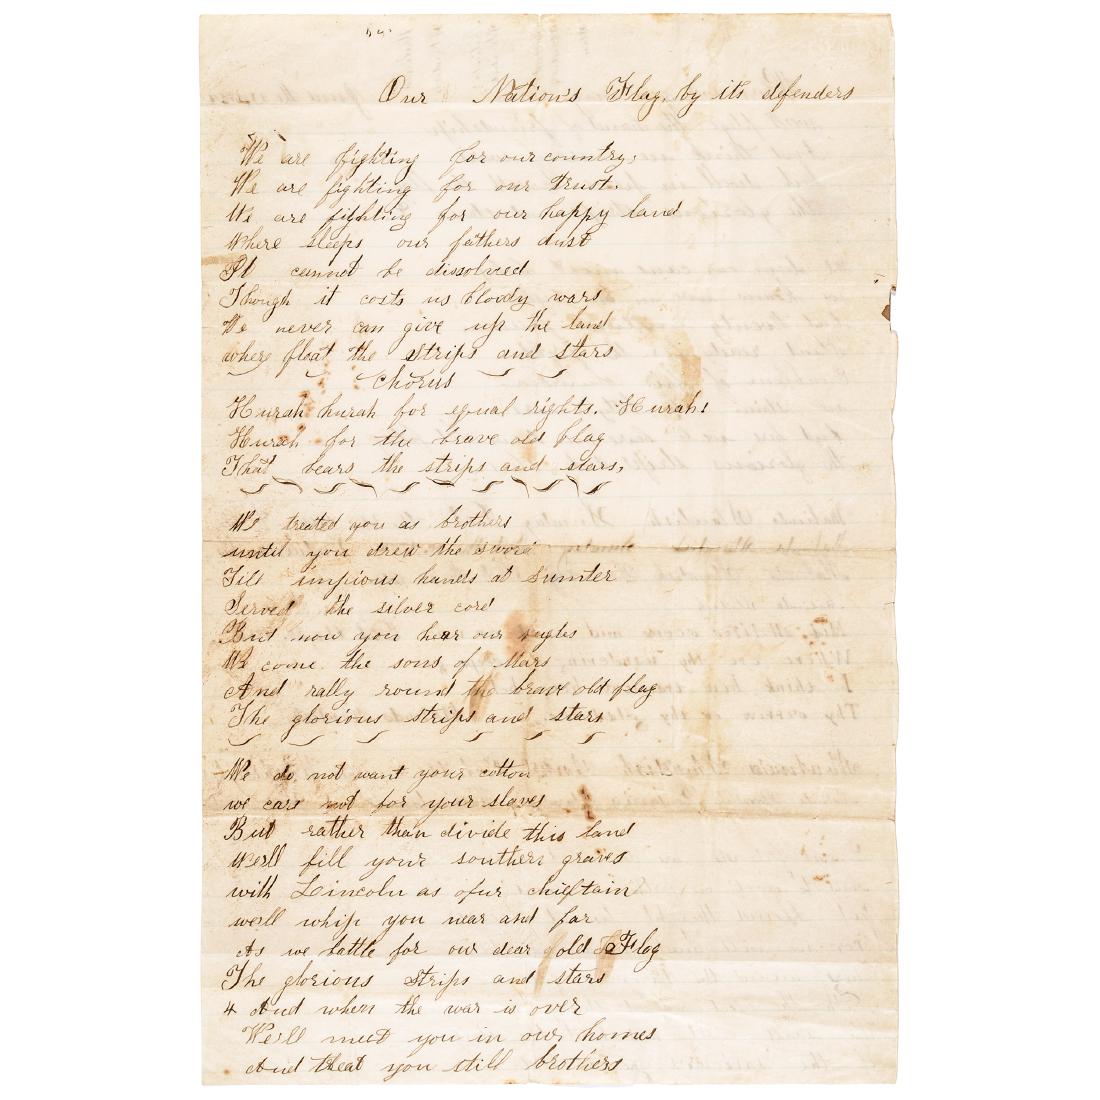 Our Nation's Flag, by its defenders
We are fighting for our country,
We are fighting for our trust.
We are fighting for our happy land
Where sleeps our fathers dust
It cannot be dissolved
Though it costs us bloody wars
We never can give up the land
where float the strips and stars
Chorus
Hurah hurah for equal rights. Hurah!
Hurah for the brave old flag
That bears the strips and stars,
We treated you as brothers
until you drew the sword
Till impious hands at Sumter
Served the silver cord
But now you hear our bugles
We come the sons of Mars
And rally round the brave old flag
The glorious strips and stars
We do not want your cotton
we care not for your slaves
But rather than divide this land
We'll fill your southern graves
with Lincoln as our chieftain
we'll whip you near and far
As we battle for our dear old Flag
The glorious strips and stars
4 And when the war is over
We'll meet you in our homes
And treat you still brothers